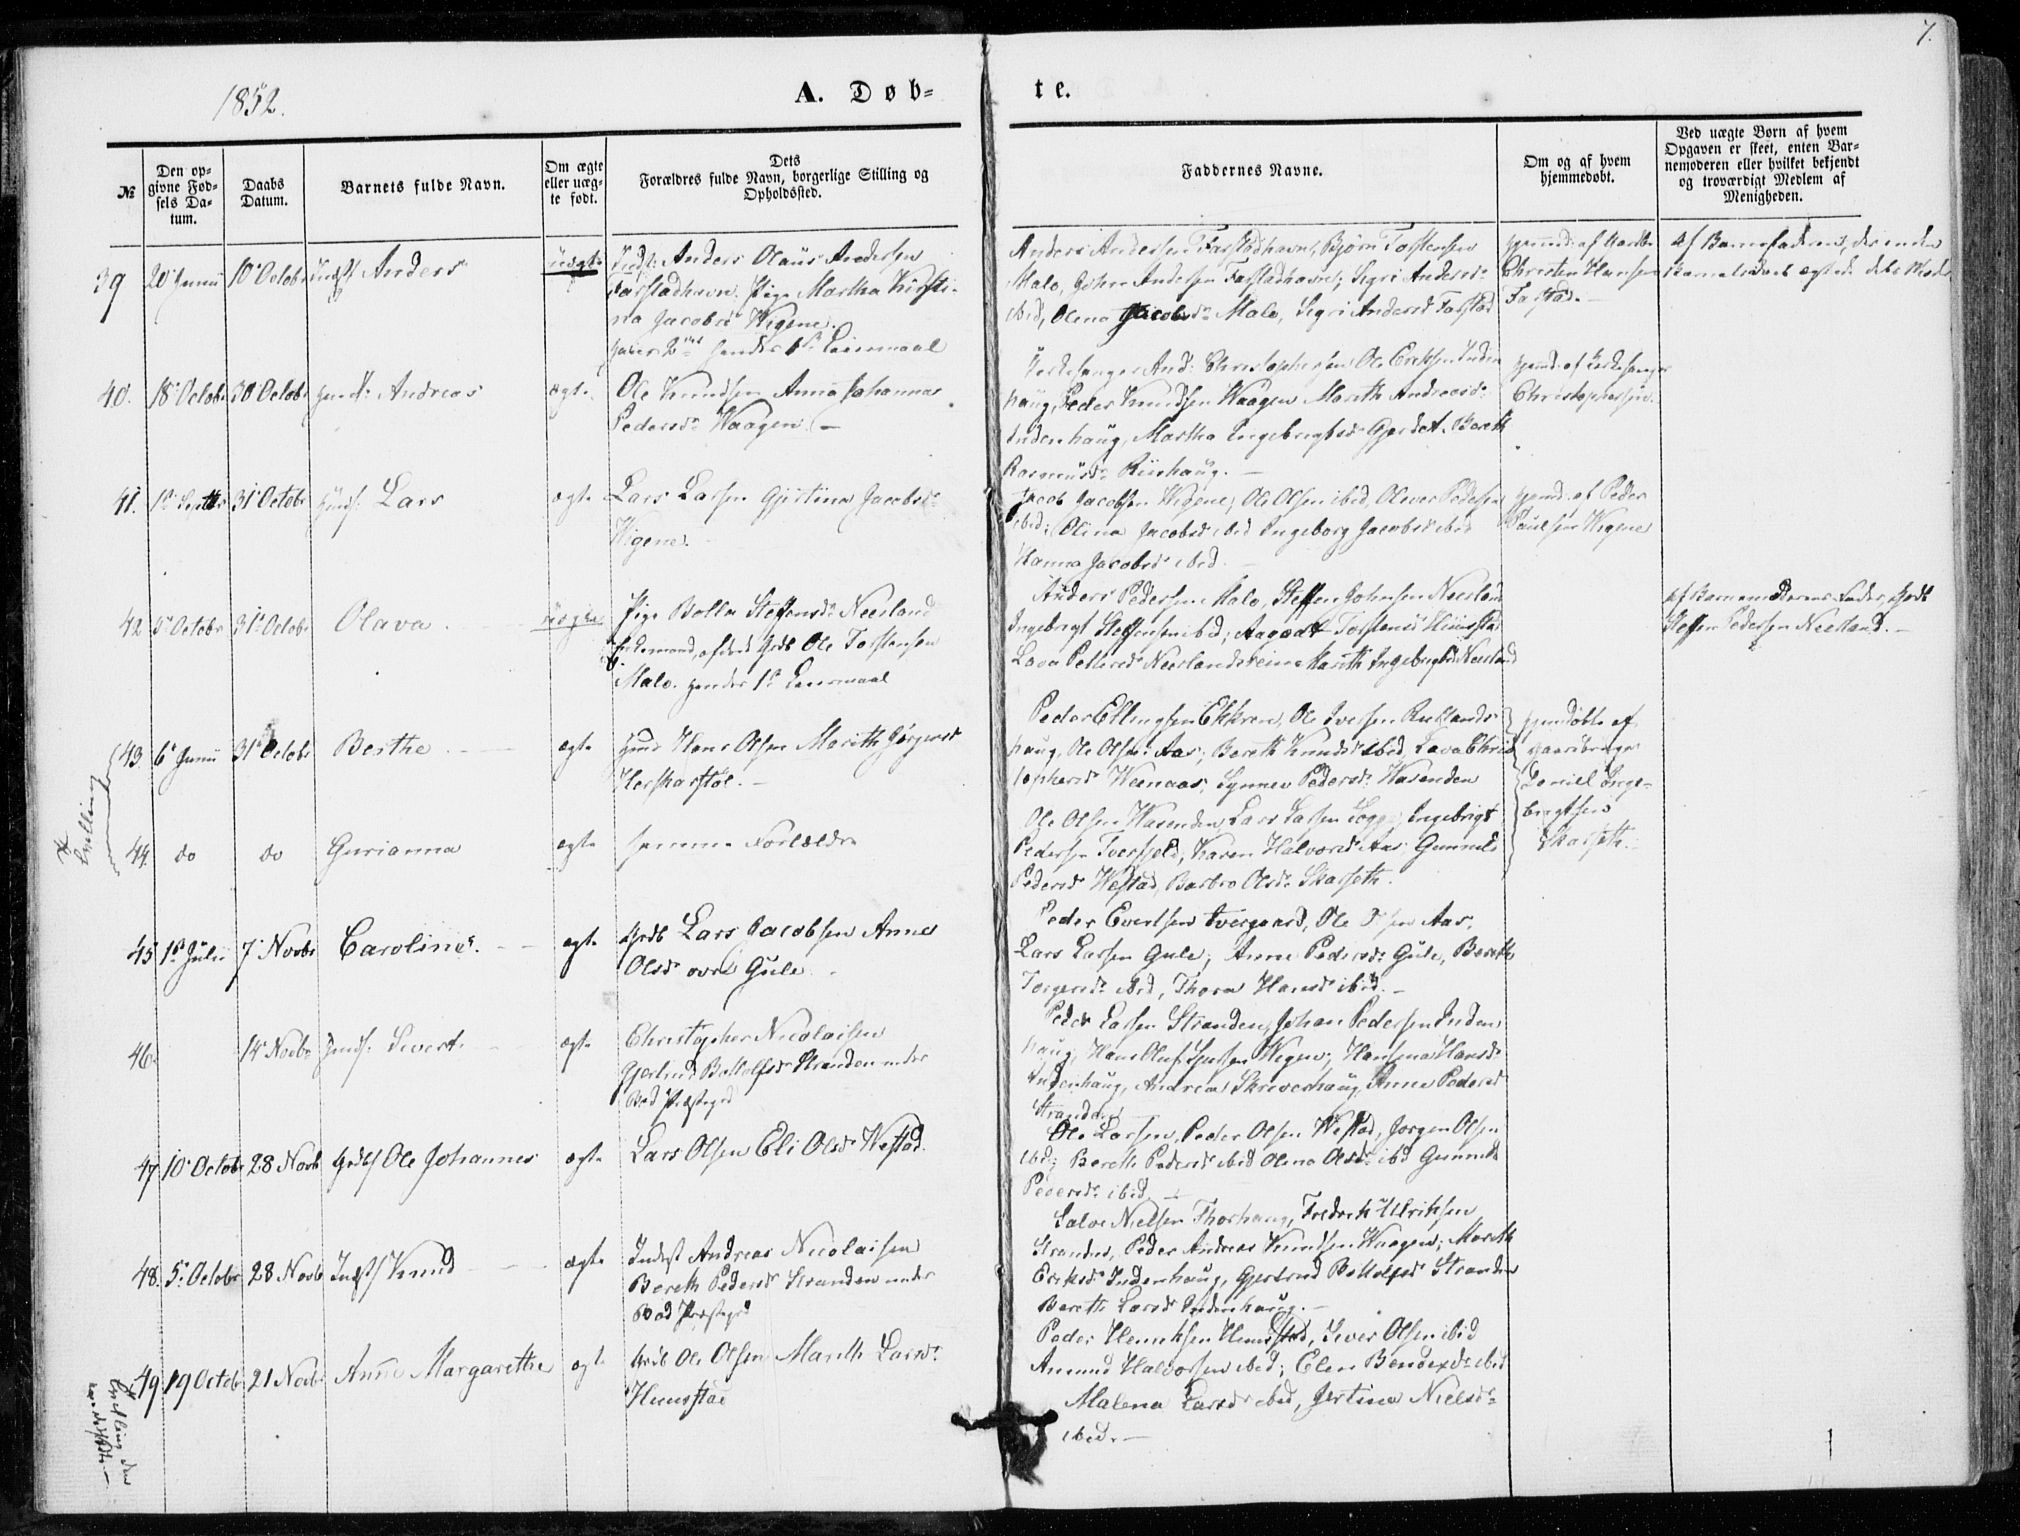 7.
1852.
A. Døb-
te.
№
Den op-
givne Fød-
sels Da-
tum.
Daabs
Datum.
Barnets fulde Navn.
Om ægte
eller uæg-
te født.
Dets
Forældres fulde Navn, borgerlige Stilling og
Opholdssted.
Faddernes Navne.
Om og af hvem
hjemmedøbt.
Ved uægte Børn af hvem
Opgaven er skeet, enten Bar-
nemoderen eller hvilket bekjendt
og troværdigt Medlem af
Menigheden.
39
20 Junii
10 Octobr
Indst Anders
uægte
Indst: Anders Olaus Andersen
Farstadhavn. Pige Martha Kirsti-
na Jacobsd Wigene.
hans 2det hendes 1ste Leiermaal
Anders Andersen Farstadhavn, Bjørn Torstensen
Malo, John Andersen Farstadhavn; Sigri Andersd
ibid, Olena Jacobsd Malo, Sigri Andersd Farstad
Christen Hansen
Farstad.
Af Barnefaderen, der inden
40.
18 Octobr
30 Octobr
Andreas
ægte
Ole Knudsen Anna Johanna
Pedersd Waagen.
Kirkesanger And: Christophersen Ole Eriksen Inden
haug, Peder Knudsen Waagen Marith Andreasd
Indenhaug, Martha Ingebrigtsd Gjerdet. Bereth
Rasmusd Riishaug.
hjemd: af Kirkesanger
Christophersen.
41.
31 Octobr
Lars
ægte
Lars Larsen Gjertina Jacobsd
Wigene.
Jacob Jacobsen Wigene, Ole Olsen ibid, Oliver Pedersen
ibid; Olina Jacobsd ibid Ingeborg Jacobsd ibid
Hanna Jacobsd ibid.
hjemd: af Peder
Paulsen Wigene
42
5 Octobr
31 Octobr
Olava.
uægte
Pige Balla Steffensd Neerland
Enkemand, Ole Torstensen
Malo. hendes 1ste Leiermaal
Anders Pedersen Malo, Steffen Johnsen Neerland
Ingebrigt Steffensen ibid; Aagaat Torstensd Hunstad
Lava Pettersd Neerlandsreine Marith Ingebrigtsd Neerland
af Barnemoderens Fader, Gdb
Steffen Pedersen Neerland.
43.
6 Junii
31 Octobr
Berthe
ægte
Hans Olsen Marith Jørgensd
Herskarstøl.
Peder Ellingsen Ekkren, Ole Iversen Ruklands
haug, Ole Olsen Aas; Bereth Knudsd ibid Lava Chris
tophersd Weenaas; Synnev Pedersd Wasenden
hjemdøbte af
Daniel Inge-
brigtsen
Skarseth.
Tvilling
44.
do
do
Gurianna
ægte
samme Forældre
Ole Olsen Wasenden, Lars Larsen Sogge, Ingebrigt
Pedersen Tverfjeld; Karen Halvorsd Aas, Gunnild
Pedersd Westad, Barbro Olsd Skarseth.
45
Julii
7 Novbr
Caroline.
ægte
Grdb Lars Jacobsen Anne
Olsd øvre Gule.
Peder Evertsen Overgaard, Ole Olsen Aas.
Lars Larsen Gule; Anne Pedersd Gule, Bereth
Torgersd ibid, Thora Hansd ibid.
46.
14 Novbr
Sivert
ægte
Christopher Nicolaisen
Gjertrud Battolfsd Stranden under
Bød Præstegd
Peder Larsen Stranden, Johan Pedersen Inden
haug, Hans Oluf Larsen Wigen; Hansena Hansd
Indenhaug, Andrea Skreverhaug, Anne Pedersd
Stranden
47
10 Octobr
28 Novb
Ole Johannes
ægte
Lars Olsen Eli Olsd Westad.
Ole Larsen, Peder Olsen Westad, Jørgen Olsen
ibid; Bereth Pedersd ibid Olena Olsd ibid Gunnild
Pedersd ibid.
48.
5 Octobr
28 Novb
Indst Knud
ægte
Inderst Andreas Nicolaisen
Bereth Pedersd Stranden under
Bød Præstegd
Salve Nielsen Thorhaug, Fredrik Ulriksen
Stranden, Peder Andreas Knudsen Waagen; Marith
Eriksd Indenhaug, Gjertrud Battolfsd Stranden
Bereth Larsd Indenhaug.
49
19 Octobr
21 Novbr
Anne Margarethe
ægte
Grdb Ole Olsen Marith Larsd
Hunstad
Peder Henriksen Hunstad, Iver Olsen ibid
Amund Halvorsen ibid; Elen Bendixd ibid
Malena Larsd ibid, Jertina Nielsd
ibid.